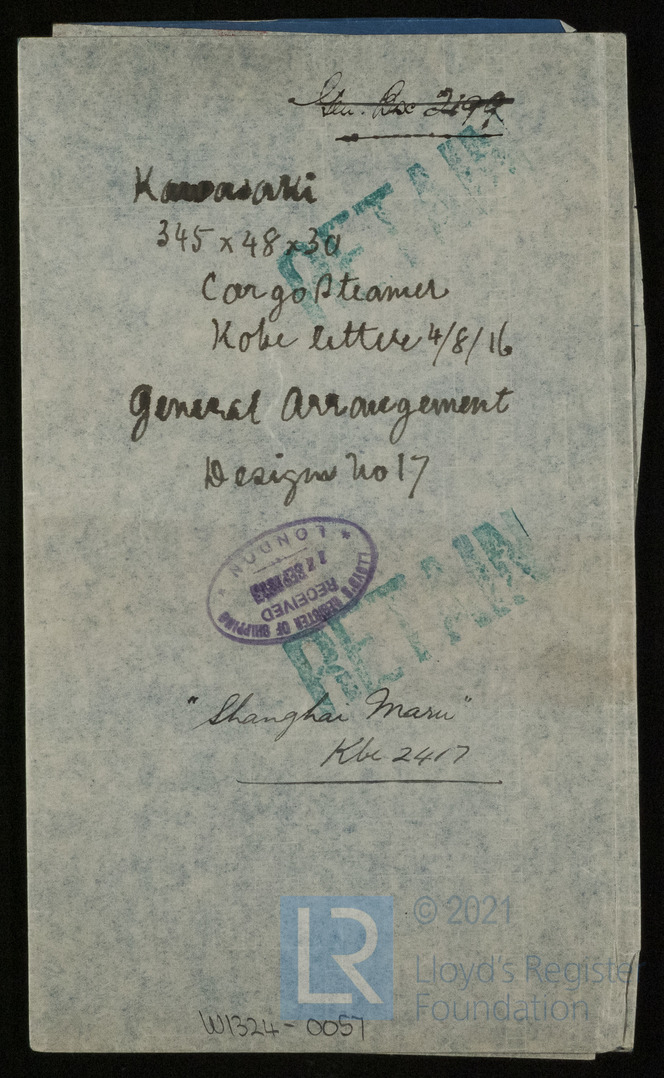 Gen. Box 2199
Kawasaki
345 x 48 x 30
Cargo Steamer
Kobe letter 4/8/16
General Arrangement
Design No 17
RETAIN
LLOYD'S REGISTER OF SHIPPING
RECEIVED
LONDON
RETAIN
"Shanghai Maru"
Kbe 2417
LR
© 2021
Lloyd's Register
Foundation
W1324-0057